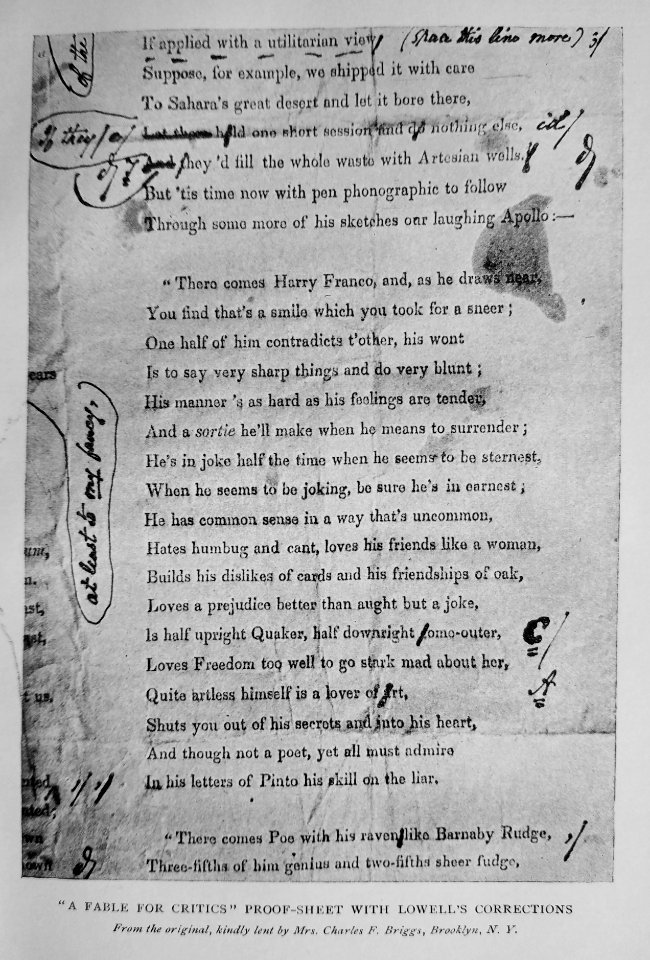 of the
If applied with a utilitarian view, (Space this line more) 3/
Suppose, for example, we shipped it with care
To Sahara's great desert and let it bore there,
If they / o/ Let them hold one short session and do nothing else,
And they'd fill the whole waste with Artesian wells.
But 'tis time now with pen phonographic to follow
Through some more of his sketches our laughing Apollo:—
"There comes Harry Franco, and, as he draws near,
You find that's a smile which you took for a sneer;
One half of him contradicts t'other, his wont
Is to say very sharp things and do very blunt;
ears
His manner 's as hard as his feelings are tender,
And a sortie he'll make when he means to surrender;
He's in joke half the time when he seems to be sternest,
When he seems to be joking, be sure he's in earnest;
at least to my fancy,
He has common sense in a way that's uncommon,
Hates humbug and cant, loves his friends like a woman,
Builds his dislikes of cards and his friendships of oak,
Loves a prejudice better than aught but a joke,
Is half upright Quaker, half downright come-outer, C/
Loves Freedom too well to go stark mad about her,
Quite artless himself is a lover of Art, A
t us,
Shuts you out of his secrets and into his heart,
And though not a poet, yet all must admire
In his letters of Pinto his skill on the liar.
"There comes Poe with his raven, like Barnaby Rudge, ,/
Three-fifths of him genius and two-fifths sheer fudge,
"A FABLE FOR CRITICS" PROOF-SHEET WITH LOWELL'S CORRECTIONS
From the original, kindly lent by Mrs. Charles F. Briggs, Brooklyn, N. Y.